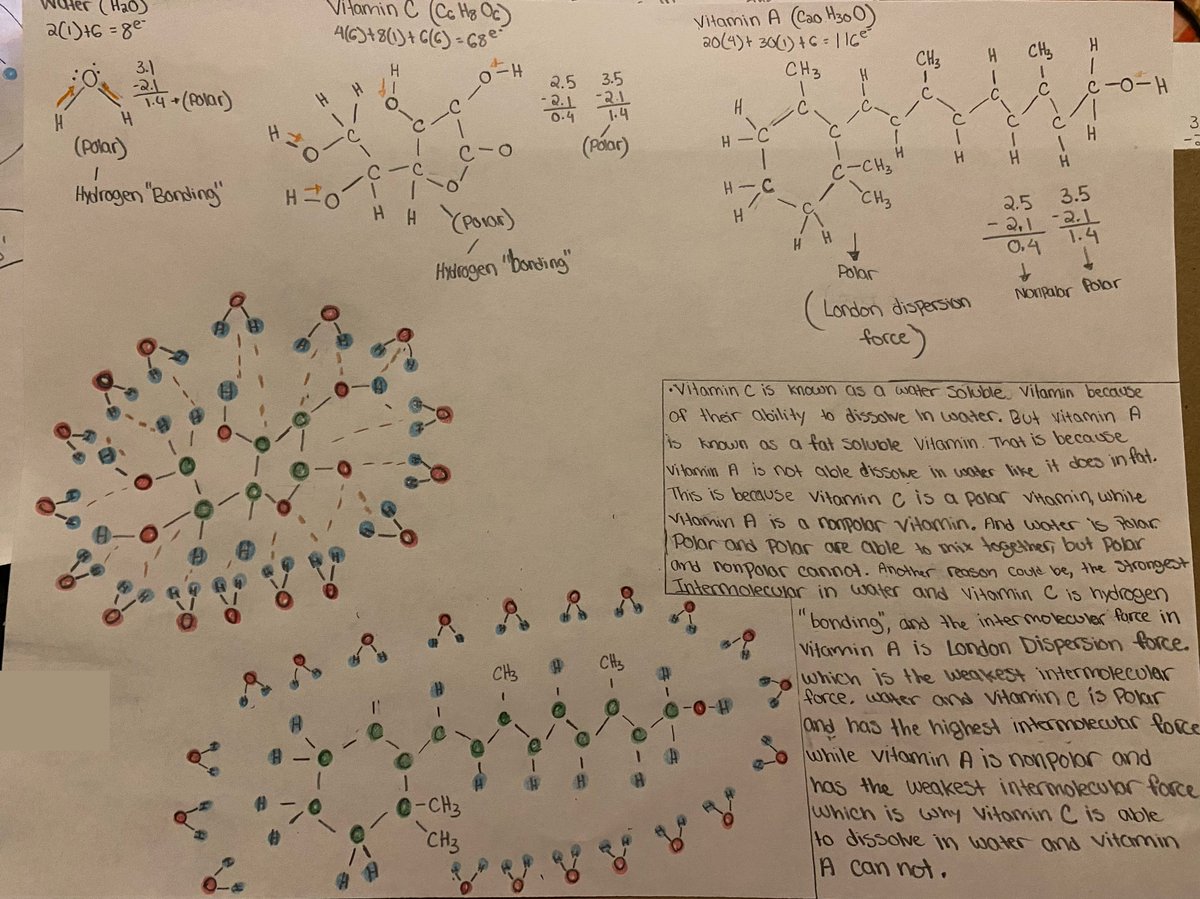 Water (H2O)
2(1)+6 = 8e-
3.1
-2.1
1.4 → (Polar)
O
H
H
(Polar)
Hydrogen "Bonding"
Vitamin C (C6 H8 O6)
4(6)+8(1)+6(6) = 68e-
2.5
-2.1
0.4
3.5
-2.1
1.4
(Polar)
(Polar)
Hydrogen "bonding"
Vitamin A (C20 H30 O)
20(4)+ 30(1)+6 = 116e-
CH3
CH3
CH3
C-O-H
C-CH3
CH3
2.5
- 2.1
0.4
Nonpolar
3.5
-2.1
1.4
Polar
Polar
(London dispersion
force)
•Vitamin C is known as a water soluble Vitamin because
of their ability to dissolve in water. But vitamin A
is known as a fat soluble vitamin. That is because
Vitamin A is not able dissolve in water like it does in fat.
This is because Vitamin C is a polar vitamin, while
Vitamin A is a nonpolar vitamin. And water is Polar
Polar and Polar are able to mix together, but Polar
and nonpolar cannot. Another reason could be, the strongest
Intermolecular in water and Vitamin C is hydrogen
"bonding", and the intermolecular force in
Vitamin A is London Dispersion force.
which is the weakest intermolecular
force. water and Vitamin C is Polar
and has the highest intermolecular force
while vitamin A is nonpolar and
has the weakest intermolecular force
which is why Vitamin C is able
to dissolve in water and vitamin
A can not.
CH3
CH3
C-O-H
C-CH3
CH3